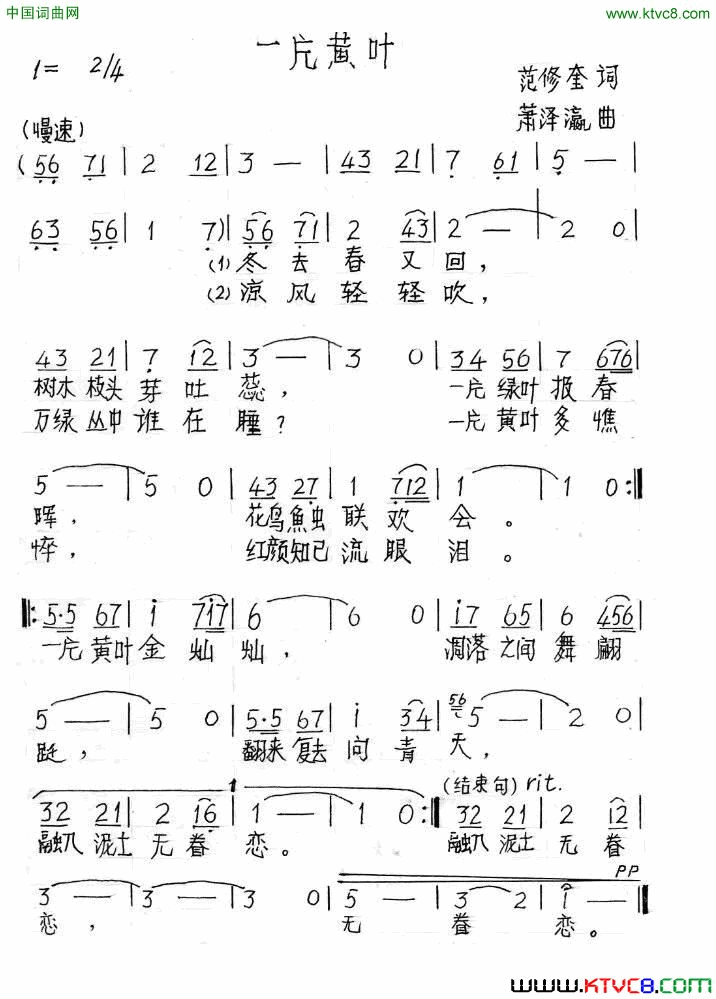 中国词曲网
www.ktvc8.com
一片黄叶
1= 2/4
范修奎 词
萧泽瀛 曲
(慢速)
(56 71| 2 12|3 —|43 21|7 61|5 —|
63 56|1 7)|56 71|2 43|2 —|2 0|
(1)冬去春又回，
(2)凉风轻轻吹，
43 21|7 12|3 —|3 0|34 56|7 676|
树木枝头芽吐蕊， 一片绿叶报春
万绿丛中谁在睡？ 一片黄叶多憔
5 —|5 0|43 27|1 712|1 —|1 0:||
晖， 花鸟魚虫联欢会。
悴， 红颜知己流眼泪。
||:5·5 67|i 7i7|6 —|6 0|i7 65|6 456|
一片黄叶金灿灿， 凋落之间舞翩
5 —|5 0|5·5 67|i 34|56 5 —|2 0|
跹， 翻来复去问青天，
1 (结束句) rit.
32 21|2 16|1 —|1 0:||32 21|2 i2|
融入泥土无眷恋。 融入泥土无眷
PP
3 —|3 —|3 0|5 —|3 2|i —||
恋， 无眷恋。
www.KTVC8.com